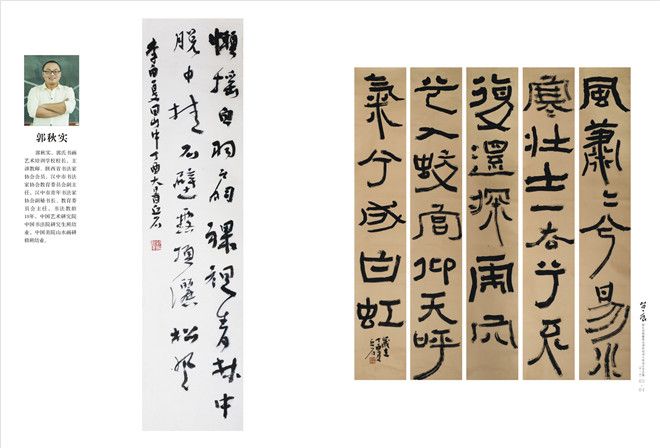 郭秋实
郭秋实，郭氏书画
艺术培训学校校长、主
讲教师、陕西省书法家
协会会员、汉中市书法
家协会教育委员会副主
任、汉中市青年书法家
协会副秘书长、教育委
员会主任。书法教龄
19年。中国艺术研究院
中国书法院研究生班结
业、中国美院山水画研
修班结业。
懒摇白羽扇裸袒青林中
脱巾挂石壁露顶灑松風
李白夏日山中丁酉大暑
風蕭々兮易水
寒壮士一去兮不
復還探虎穴
兮入蛟宫仰天呼
氣兮成白虹